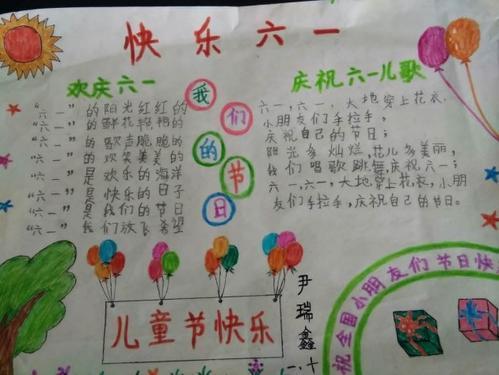 快乐六一
欢庆六一
“六一”的阳光红红的
“六一”的鲜花艳艳的
“六一”的歌声脆脆的
“六一”的欢笑美美的
“六一”是欢乐的海洋
“六一”是快乐的日子
“六一”是我们的节日
“六一”是我们放飞希望
我们的节日
庆祝六一儿歌
六一，六一，大地穿上花衣，
小朋友们手拉手，
庆祝自己的节日；
阳光多灿烂，花儿多美丽，
我们唱歌跳舞庆祝六一；
六一，六一，大地穿上花衣，小朋
友们手拉手，庆祝自己的节日。
儿童节快乐
尹瑞鑫
一.十
祝全国小朋友们节日快